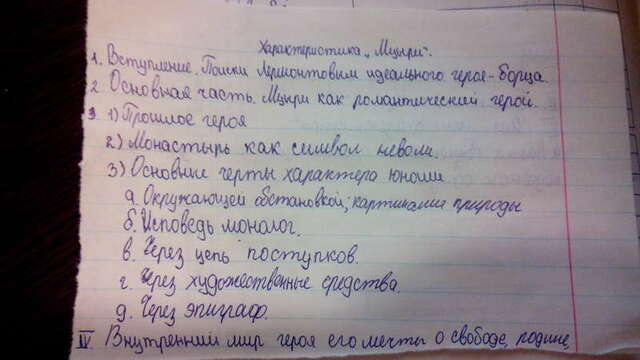 Характеристика „Мцыри".
1. Вступление. Поиски Лермонтовым идеального героя-борца.
2. Основная часть. Мцыри как романтический герой.
3. 1) Прошлое героя
2) Монастырь как символ неволи.
3) Основные черты характера юноши
а. Окружающей обстановкой, картинами природы
б. Исповедь монолог.
в. Через цепь поступков.
г. Через художественные средства.
д. Через эпиграф.
IV. Внутренний мир героя его мечты о свободе, родине,